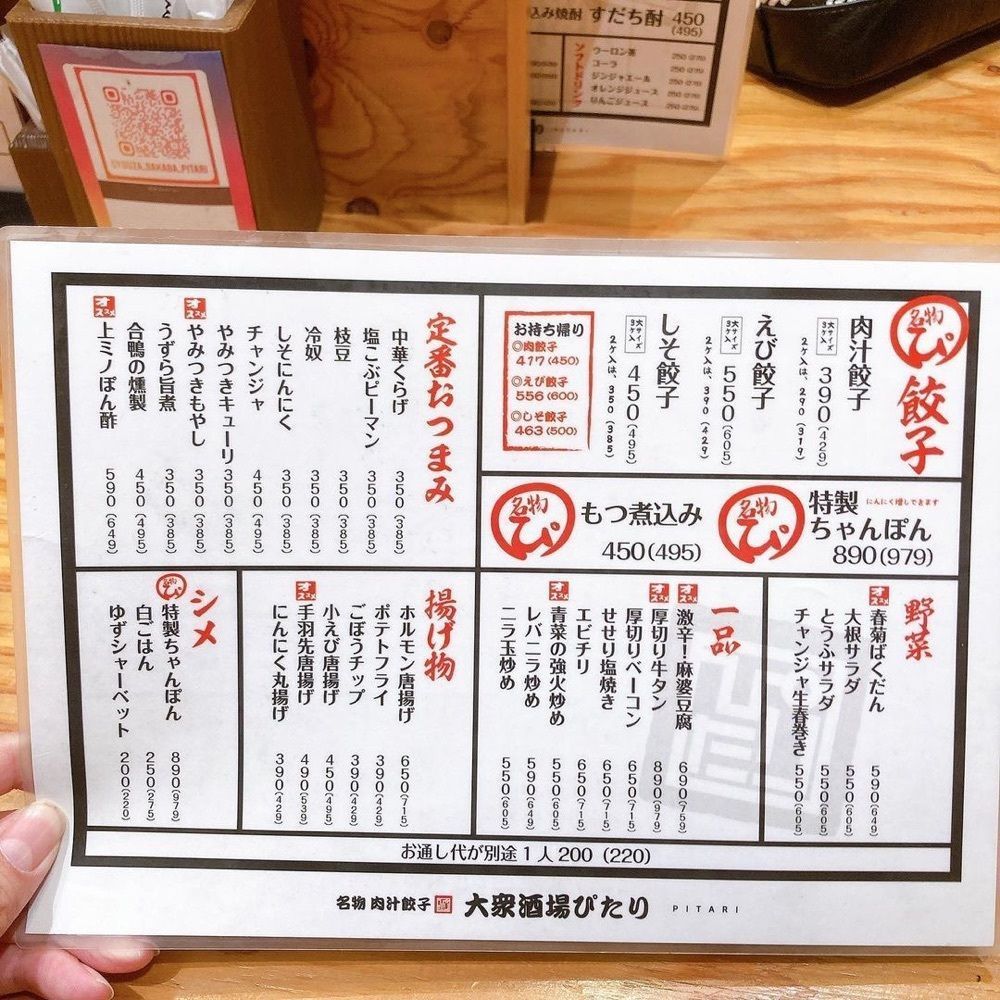 込み焼酎 すだち酎 450
(495)
ソフトドリンク
ウーロン茶 250(275)
コーラ
ジンジャエール
オレンジジュース
りんごジュース
GYOUZA_SAKABA_PITARI
名物 ぴ 餃子
肉汁餃子
大サイズ 3ケ入 390(429)
2ケ入は、290(319)
えび餃子
大サイズ 3ケ入 550(605)
2ケ入は、390(429)
しそ餃子
大サイズ 3ケ入 450(495)
2ケ入は、350(385)
お持ち帰り
◎肉餃子
417(450)
◎えび餃子
556(600)
◎しそ餃子
463(500)
定番おつまみ
中華くらげ 350(385)
塩こぶピーマン 350(385)
枝豆 350(385)
冷奴 350(385)
しそにんにく 350(385)
チャンジャ 450(495)
やみつきキューリ 350(385)
オススメ やみつきもやし 350(385)
うずら旨煮 350(385)
合鴨の燻製 450(495)
オススメ 上ミノぽん酢 590(649)
名物 ぴ もつ煮込み
450(495)
名物 ぴ 特製 にんにく増しできます
ちゃんぽん
890(979)
野菜
オススメ 春菊ばくだん 590(649)
大根サラダ 550(605)
とうふサラダ 550(605)
チャンジャ生春巻き 550(605)
一品
オススメ 激辛!麻婆豆腐 690(759)
オススメ 厚切り牛タン 890(979)
厚切りベーコン 650(715)
せせり塩焼き 650(715)
エビチリ 650(715)
オススメ 青菜の強火炒め 550(605)
レバニラ炒め 590(649)
ニラ玉炒め 550(605)
揚げ物
ホルモン唐揚げ 650(715)
ポテトフライ 390(429)
ごぼうチップ 390(429)
小えび唐揚げ 450(495)
オススメ 手羽先唐揚げ 490(539)
にんにく丸揚げ 390(429)
シメ
名物 ぴ 特製ちゃんぽん 890(979)
白ごはん 250(275)
ゆずシャーベット 200(220)
お通し代が別途1人200(220)
名物 肉汁餃子 大衆酒場ぴたり PITARI